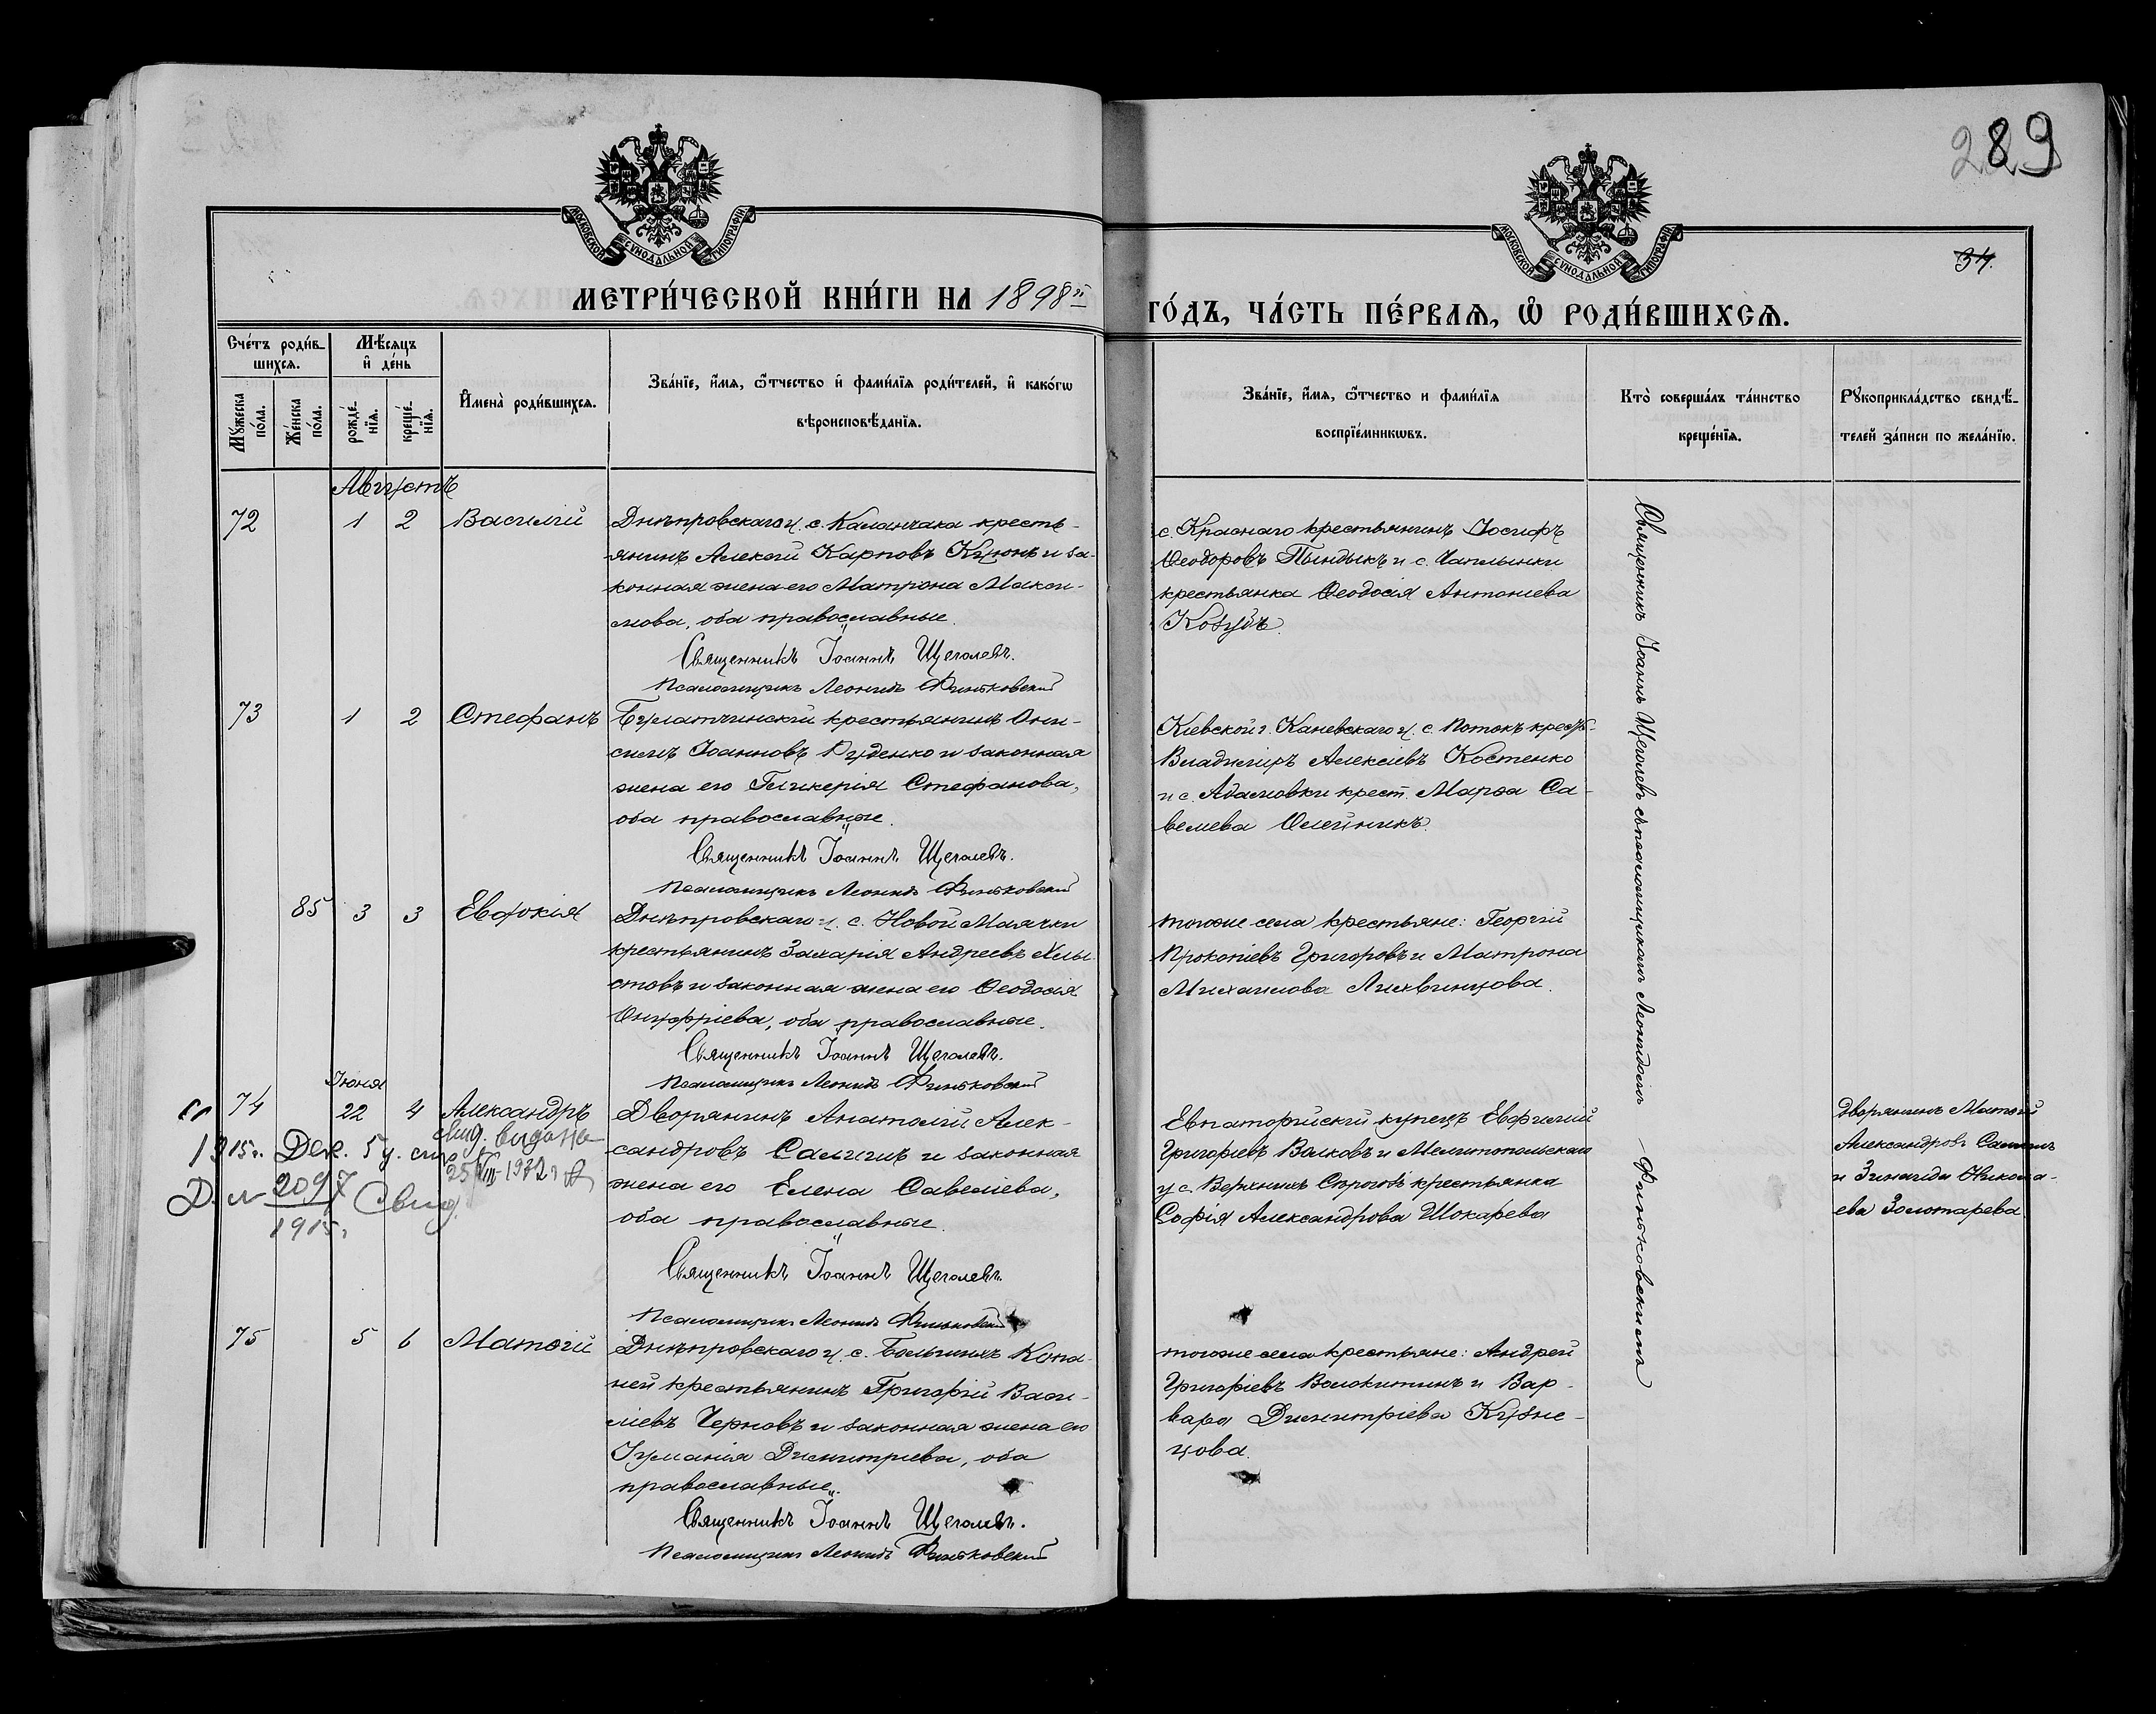 289
34.
МОСКОВСКОЙ СѴНОДАЛЬНОЙ ТИПОГРАФІИ
МОСКОВСКОЙ СѴНОДАЛЬНОЙ ТИПОГРАФІИ
МЕТРИ́ЧЕСКОЙ КНИ́ГИ НА 1898й
ГО́ДЪ, ЧА́СТЬ ПЕ́РВАѦ, Ѡ҆ РОДИ́ВШИХСѦ.
Сче́тъ роди́в-
шихсѧ.
Мѣ́сѧцъ
и҆ де́нь
Мꙋ́жеска по́ла.
Же́нска по́ла.
рожде́-нїѧ.
креще́-нїѧ.
И҆мена̀ роди́вшихсѧ.
Зва́нїе, и҆́мѧ, ѻ҆́тчество и҆ фами́лїѧ роди́телей, и҆ како́гѡ
вѣроисповѣ́данїѧ.
Зва́нїе, и҆́мѧ, ѻ҆́тчество и фами́лїѧ
воспрїе́мникѡвъ.
Кто̀ соверша́лъ та́инство
креще́нїѧ.
Рꙋкоприкла́дство свидѣ́-
телей за́писи по жела́нїю.
Августъ
72 1 2 Василій
Днѣпровскаго у. с. Каланчака кресть-
янинъ Алексій Карповъ Куюнъ и за-
конная жена его Матрона Макси-
мова, оба православные.
Священникъ Іоаннъ Щеголевъ.
Псаломщикъ Леонидъ Финьковскій
с. Краснаго крестьянинъ Іосифъ
Ѳеодоровъ Пындыкъ и с. Чаплынки
крестьянка Ѳеодосія Антоніева
Козубъ.
73 1 2 Стефанъ
крестьянинъ Они-
симъ Іоанновъ Руденко и законная
жена его Гликерія Стефанова,
оба православные.
Священникъ Іоаннъ Щеголевъ.
Псаломщикъ Леонидъ Финьковскій
Кіевской г. Каневскаго у. с. Потокъ крест.
Владиміръ Алексіевъ Костенко
и с. Адамовки крест. Марѳа Са-
велиева Олейникъ.
85 3 3 Евдокія
Днѣпровскаго у. с. Новой Маячки
крестьянинъ Захарія Андреевъ Хлы-
стовъ и законная жена его Ѳеодосія
Онуфріева, оба православные.
Священникъ Іоаннъ Щеголевъ.
Псаломщикъ Леонидъ Финьковскій
тогоже села крестьяне: Георгій
Прокопіевъ Григоровъ и Матрона
Михаилова Лихвинцова.
Іюня
74 22 4 Александръ
Дворянинъ Анатолій Алек-
сандровъ Салигинъ и законная
жена его Елена Савеліева,
оба православные.
Священникъ Іоаннъ Щеголевъ.
Псаломщикъ Леонидъ Финьковскій
свид. выдано
25/VIII-1932 г
1915 г. Дек. 5 у.
Д. № 2097
1915 г.
Свид.
Евпаторійскій купецъ Евфимій
Григоріевъ Волковъ и Мелитопольскаго
у с. Верхнихъ Сѣрогозъ крестьянка
Софія Александрова Шокарева
дворянинъ Матѳій
Александровъ
и Зинаида Никола-
ева Золотарева
75 5 6 Матѳій
Днѣпровскаго у. с. Большихъ Копа-
ней крестьянинъ Григорій Васи-
ліевъ Черновъ и законная жена его
Іуліанія Димитріева, оба
православные.
Священникъ Іоаннъ Щеголевъ.
Псаломщикъ Леонидъ Финьковскій
тогоже села крестьяне: Андрей
Григоріевъ Волокитинъ и Вар-
вара Димитріева Кузне-
цова.
Священникъ Іоаннъ Щеголевъ съ псаломщикомъ Леонидомъ Финьковскимъ